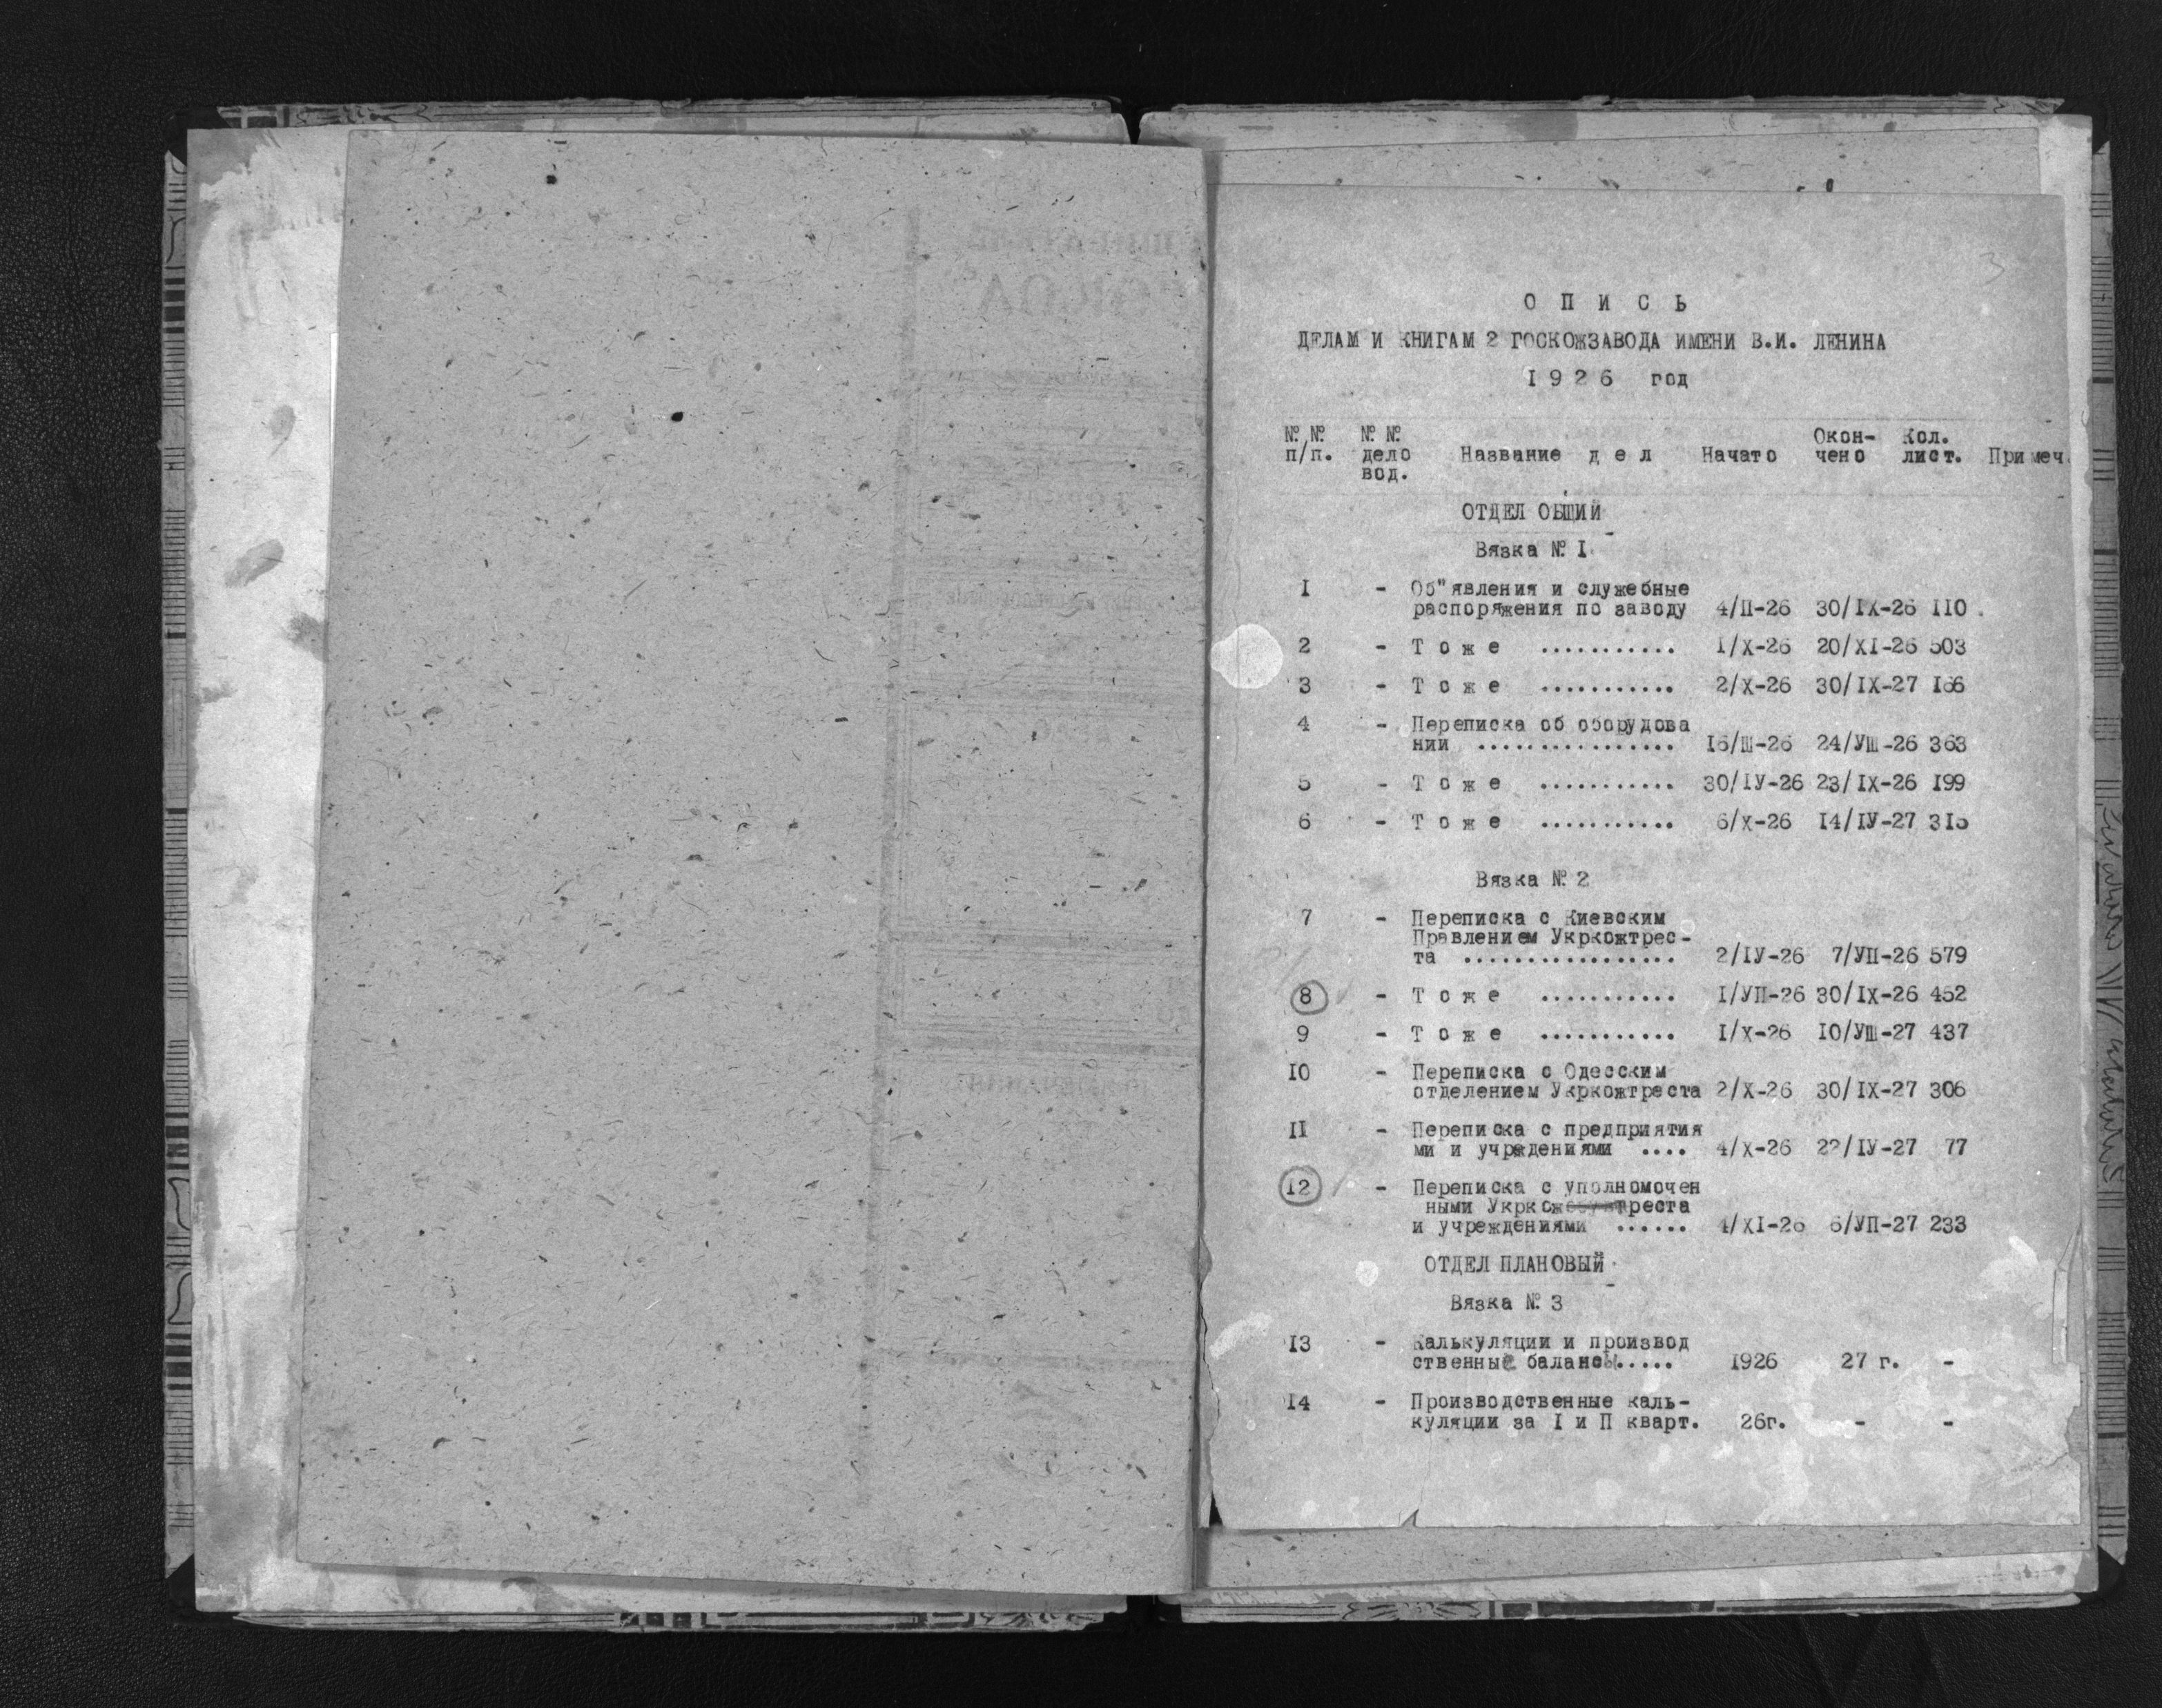 3
О П И С Ь
ДЕЛАМ И КНИГАМ 2 ГОСКОЖЗАВОДА ИМЕНИ В.И. ЛЕНИНА
I 9 2 6 год
№ № № № Окон- Кол.
п/п. дело Название д е л Начато чено лист. Примеч.
вод.
ОТДЕЛ ОБЩИЙ
Вязка № I
I - Об"явления и служебные
распоряжения по заводу 4/П-26 30/IX-26 IIO
2 - Т о ж е ........... I/X-26 20/XI-26 503
3 - Т о ж е ........... 2/X-26 30/IX-27 I66
4 - Переписка об оборудова
нии ................ I6/Ш-26 24/УШ-26 363
5 - Т о ж е ........... 30/IУ-26 23/IX-26 I99
6 - Т о ж е ........... 6/X-26 I4/IУ-27 3I5
Вязка № 2
7 - Переписка с Киевским
Правлением Укркожтрес-
та ................. 2/IУ-26 7/УП-26 579
8 - Т о ж е ........... I/УП-26 30/IX-26 452
9 - Т о ж е ........... I/X-26 IO/УШ-27 437
IO - Переписка с Одесским
отделением Укркожтреста 2/X-26 30/IX-27 306
II - Переписка с предприятия
ми и учреждениями .... 4/X-26 22/IУ-27 77
I2 - Переписка с уполномочен
ными Укркожтреста
и учреждениями ...... 4/XI-26 6/УП-27 233
ОТДЕЛ ПЛАНОВЫЙ
Вязка № 3
I3 - Калькуляции и производ
ственные балансы..... I926 27 г. -
I4 - Производственные каль-
куляции за I и П кварт. 26г. - -